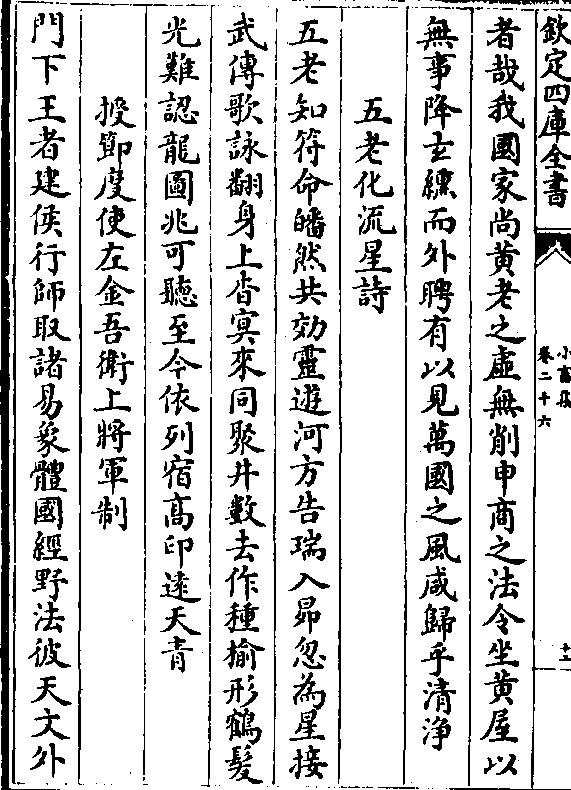 欽定四庫全書
小畜集
卷二十六
十二
者哉我國家尚黄老之虛無削申商之法令坐黄屋以
無事降玄纁而外聘有以見萬國之風咸歸乎清浄
五老化流星詩
五老知符命皤然共効靈遊河方告瑞入昴忽為星接
武傳歌詠翻身上杳冥來同聚井數去作種榆形鶴髮
光難認龍圖兆可聽至今依列宿髙印逺天青
授節度使左金吾衛上將軍制
門下王者建侯行師取諸易象體國經野法彼天文外